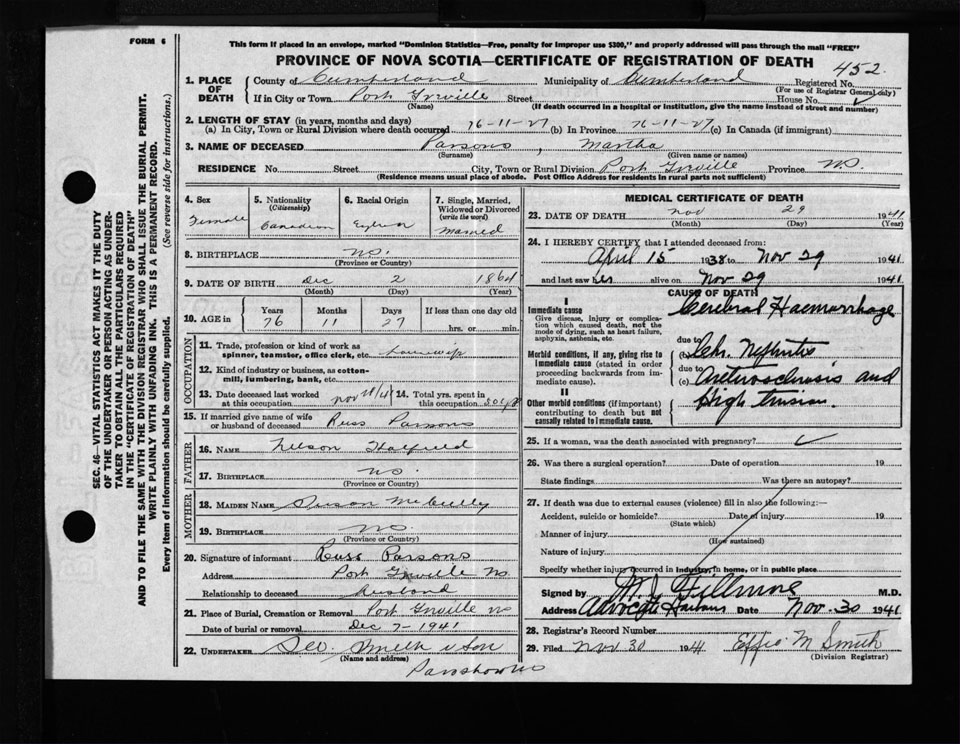 FORM 6
This form if placed in an envelope, marked "Dominion Statistics—Free, penalty for improper use $300," and properly addressed will pass through the mail "FREE"
PROVINCE OF NOVA SCOTIA—CERTIFICATE OF REGISTRATION OF DEATH
452
1. PLACE OF DEATH
County of Cumberland Municipality of Cumberland Registered No.
(For use of Registrar General only)
If in City or Town Port Greville Street House No.
(Name) (If death occurred in a hospital or institution, give the name instead of street and number)
2. LENGTH OF STAY (in years, months and days)
(a) In City, Town or Rural Division where death occurred 76-11-27 (b) In Province 76-11-27 (c) In Canada (if immigrant)
3. NAME OF DECEASED Parsons, Martha
(Surname) (Given name or names)
RESIDENCE No. Street City, Town or Rural Division Port Greville Province NS.
(Residence means usual place of abode. Post Office Address for residents in rural parts not sufficient)
4. Sex
Female
5. Nationality
(Citizenship)
Canadian
6. Racial Origin
7. Single, Married, Widowed or Divorced
(write the word)
Married
8. BIRTHPLACE NS.
(Province or Country)
9. DATE OF BIRTH Dec 2 1864
(Month) (Day) (Year)
10. AGE in
Years Months Days If less than one day old
76 11 27 hrs. or min.
OCCUPATION
11. Trade, profession or kind of work as spinner, teamster, office clerk, etc. housewife
12. Kind of industry or business, as cotton-mill, lumbering, bank, etc.
13. Date deceased last worked at this occupation Nov 14. Total yrs. spent in this occupation
15. If married give name of wife or husband of deceased Russ Parsons
FATHER
16. NAME Nelson Hatfield
17. BIRTHPLACE NS.
(Province or Country)
MOTHER
18. MAIDEN NAME Susan McCully
19. BIRTHPLACE NS.
(Province or Country)
20. Signature of informant Russ Parsons
Address Port Greville NS
Relationship to deceased Husband
21. Place of Burial, Cremation or Removal Port Greville NS
Date of burial or removal Dec 7-1941
22. UNDERTAKER Geo. Smith & Son
(Name and address)
Parrsboro NS
MEDICAL CERTIFICATE OF DEATH
23. DATE OF DEATH Nov 29 1941
(Month) (Day) (Year)
24. I HEREBY CERTIFY that I attended deceased from:
April 15 1938 to Nov 29 1941
and last saw her alive on Nov 29 1941
CAUSE OF DEATH
I
Immediate cause
Give disease, injury or complication which caused death, not the mode of dying, such as heart failure, asphyxia, asthenia, etc.
Cerebral Haemorrhage
Morbid conditions, if any, giving rise to immediate cause (stated in order proceeding backwards from immediate cause).
due to
(b) Chr. Nephritis
due to
(c) Arterosclrosis and
II
Other morbid conditions (if important) contributing to death but not causally related to immediate cause.
High tension.
25. If a woman, was the death associated with pregnancy?
26. Was there a surgical operation? Date of operation 19
State findings Was there an autopsy?
27. If death was due to external causes (violence) fill in also the following:—
Accident, suicide or homicide? Date of injury 19
(State which)
Manner of injury
(How sustained)
Nature of injury
Specify whether injury occurred in industry, in home, or in public place
Signed by Fillmore M.D.
Address Advocate Harbour Date Nov. 30 1941
28. Registrar's Record Number
29. Filed Nov 30 1941 Effie M Smith
(Division Registrar)
SEC. 46—VITAL STATISTICS ACT MAKES IT THE DUTY
OF THE UNDERTAKER OR PERSON ACTING AS UNDER-
TAKER TO OBTAIN ALL THE PARTICULARS REQUIRED
IN THE "CERTIFICATE OF REGISTRATION OF DEATH"
AND TO FILE THE SAME WITH THE DIVISION REGISTRAR WHO SHALL ISSUE THE BURIAL PERMIT.
WRITE PLAINLY WITH UNFADING INK. THIS IS A PERMANENT RECORD.
Every item of information should be carefully supplied. (See reverse side for instructions.)